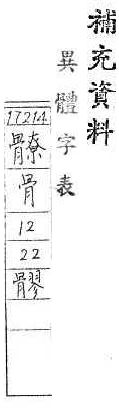 補充資料
異體字表
17214
髎
骨
12
22
髎